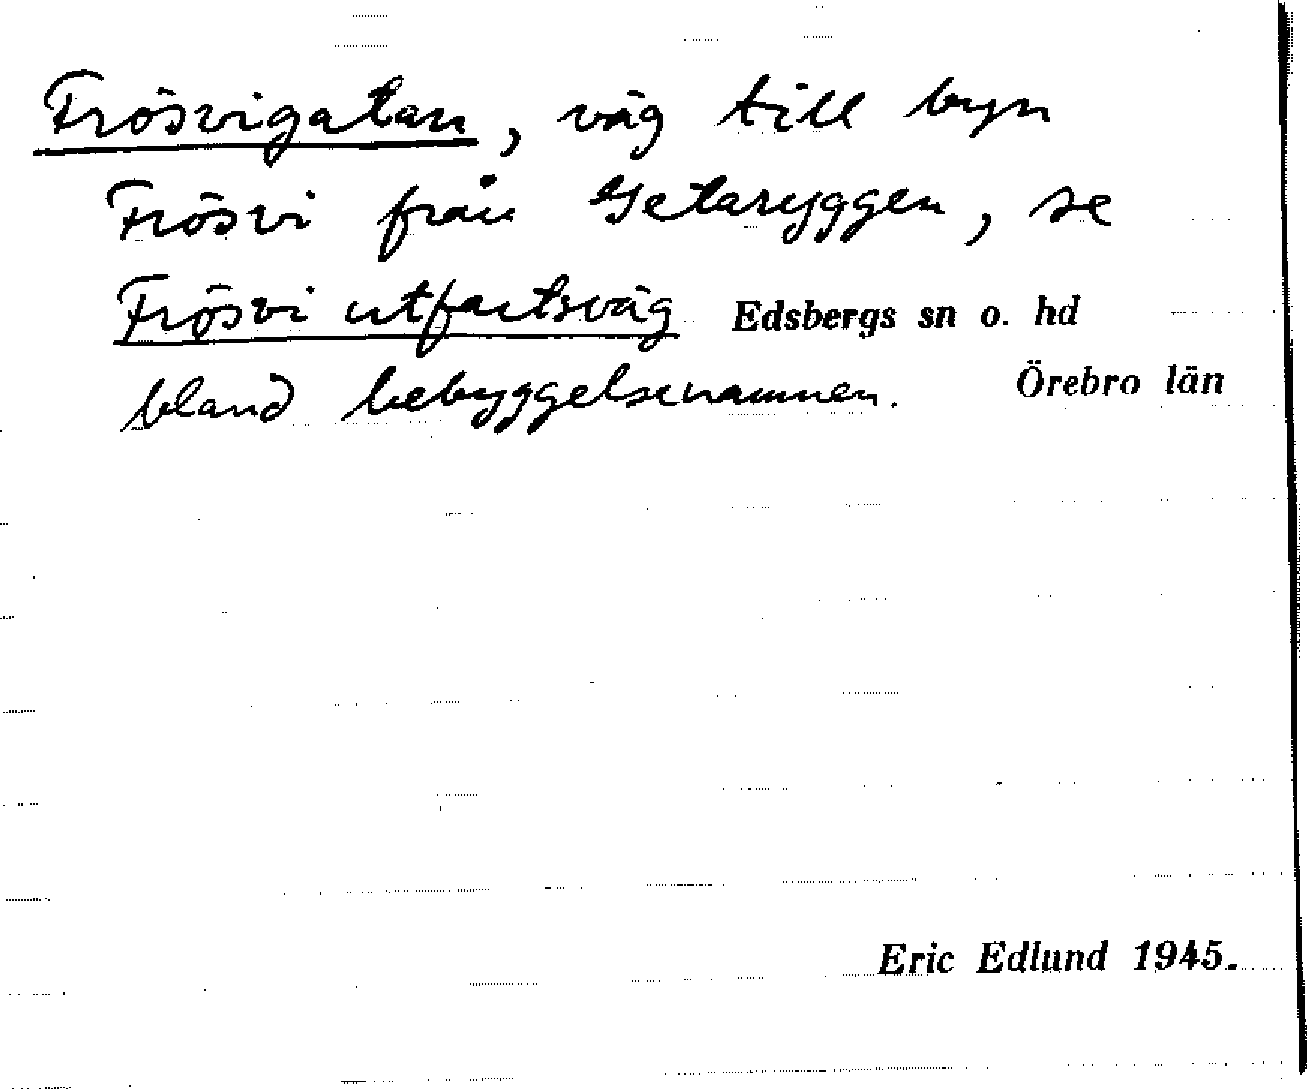 Frösvigatan, väg till byn
Frösvi från Getaryggen, se
Frösvi utfartsväg Edsbergs sn o. hd
bland bebyggelsenamnen. Örebro län
Eric Edlund 1945.